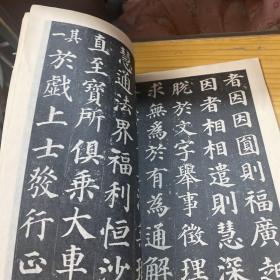 者因因圓則福廣
因者相相遣則慧深
脫於文字舉事徵理
求無為於有為通解
慧通法界福利恒沙
直至寶所俱乘大車
其一於戲上士發行正